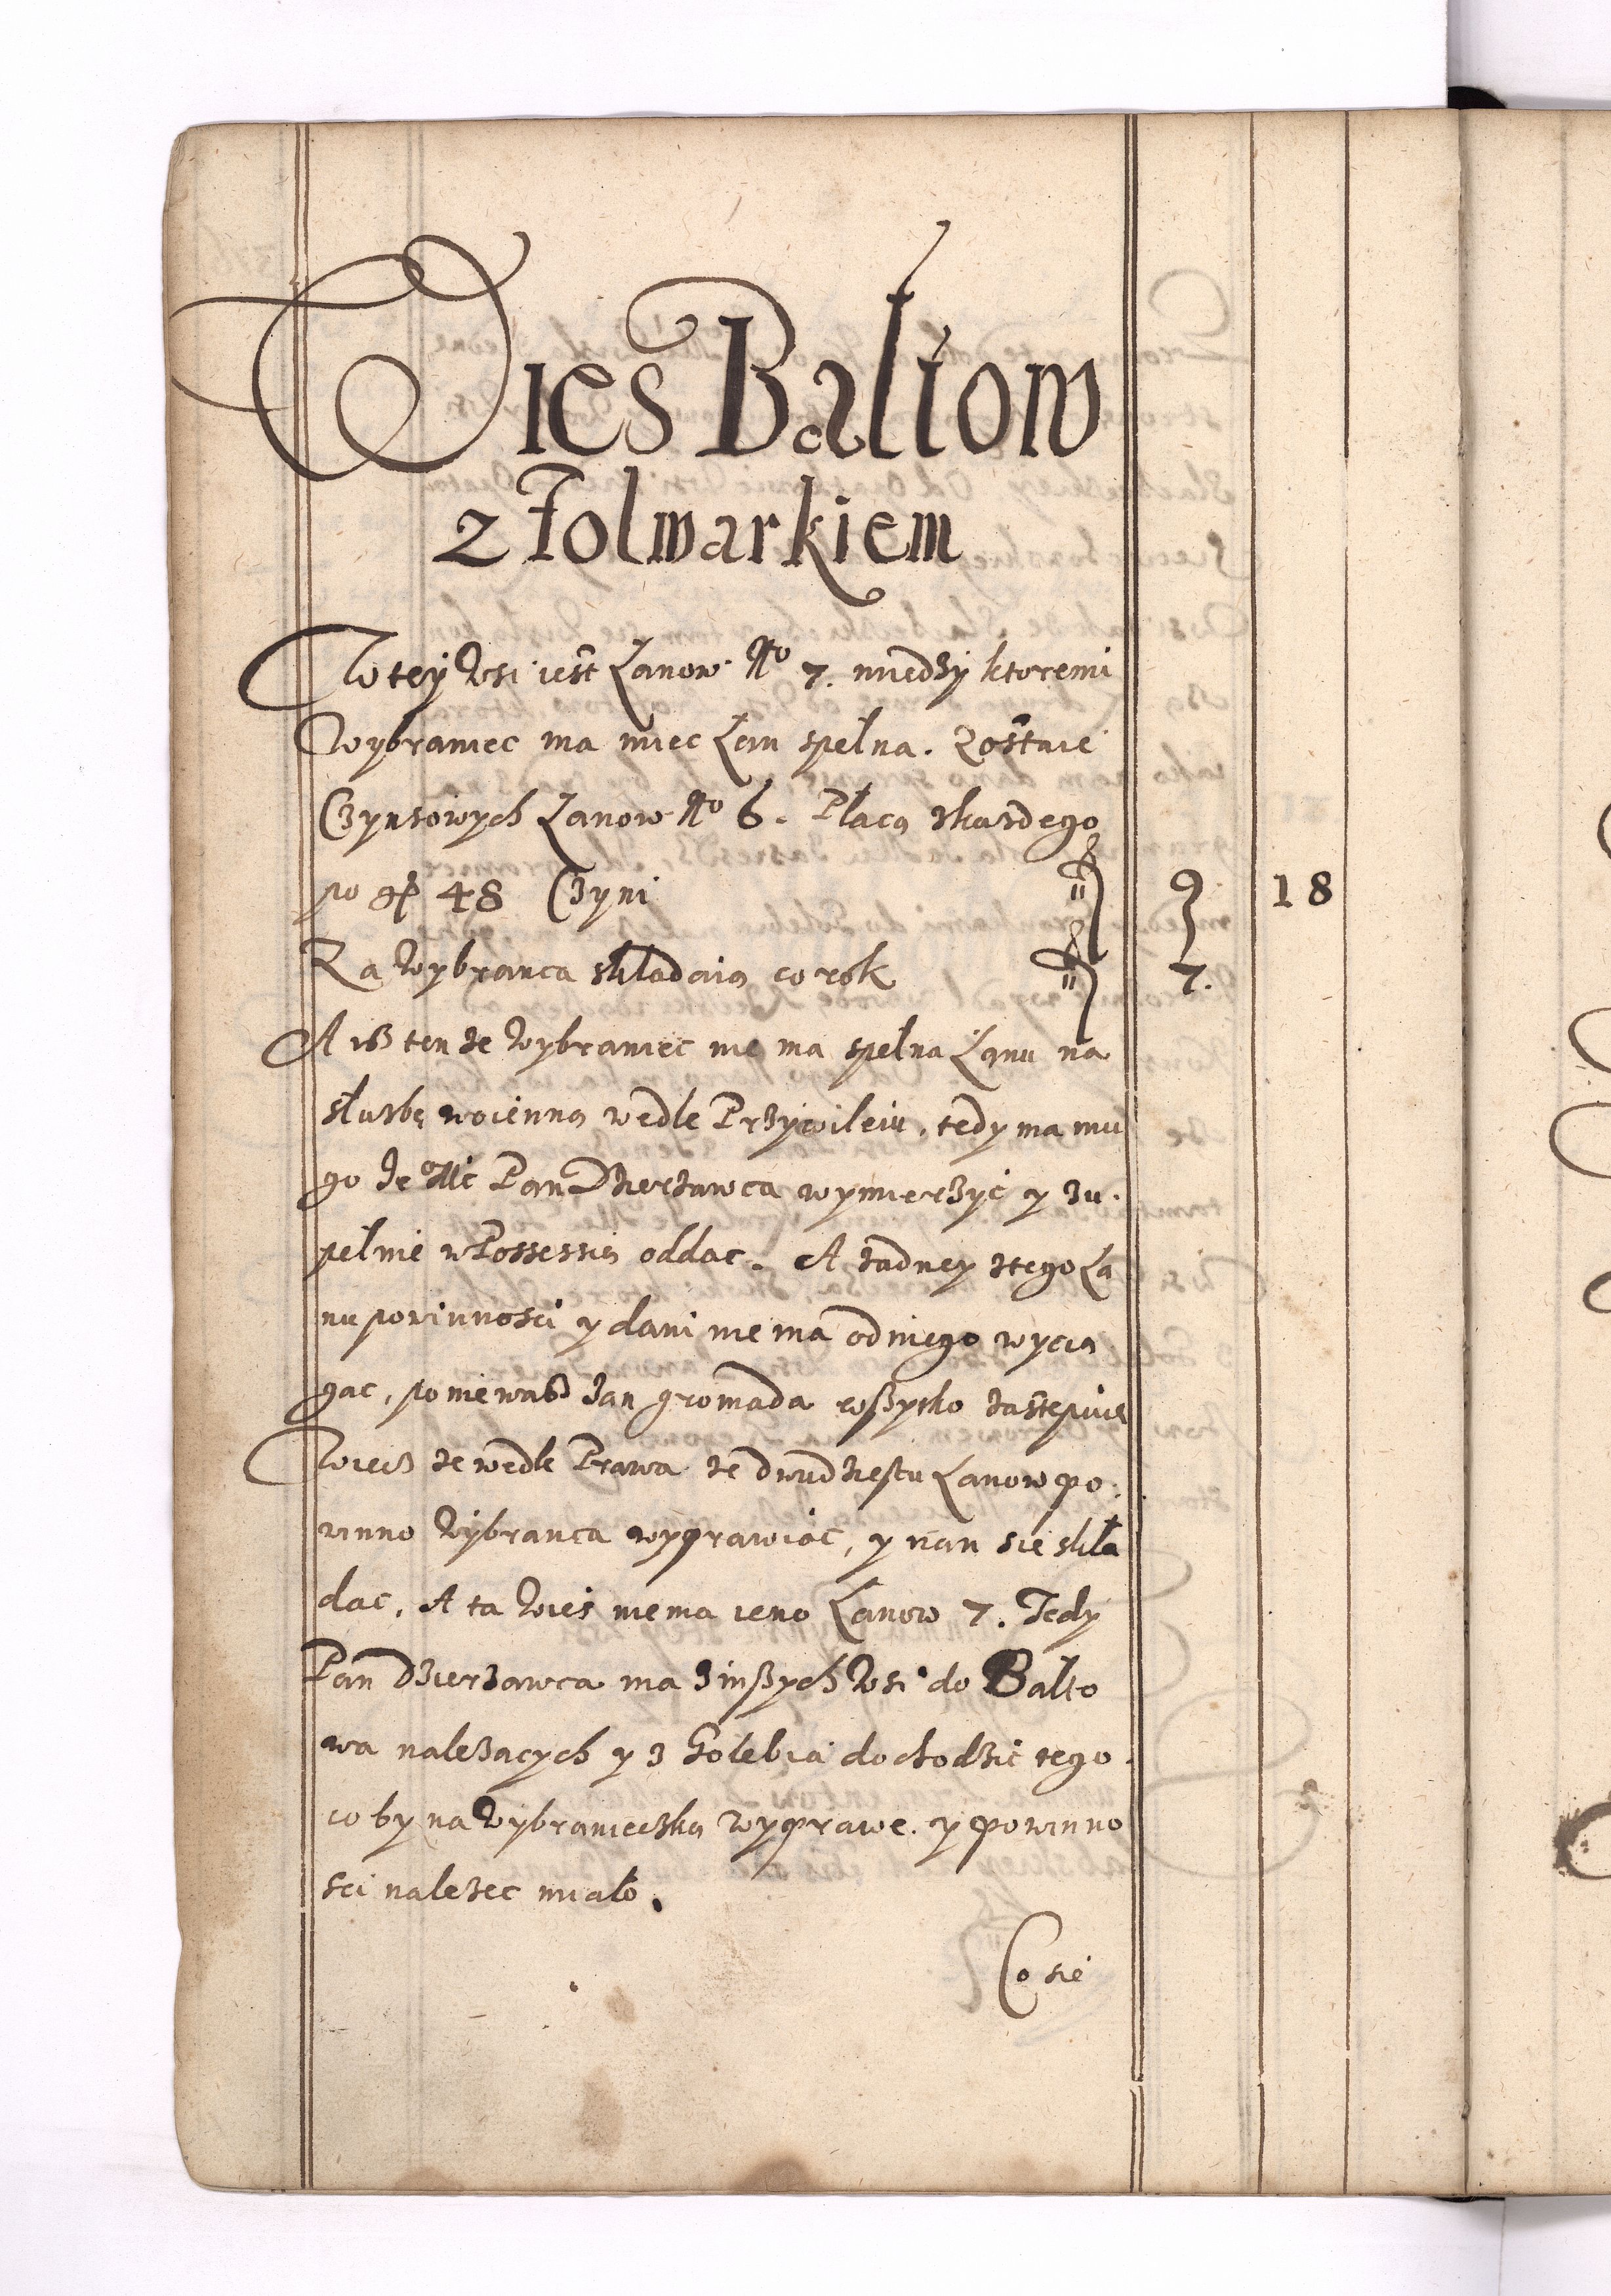 Wies Baltow
z Folwarkiem
W tey Wsi iest Łanow No 7. miedzy ktoremi
Wybraniec ma miec Łan spełna. Zostaie
Czynsowych Łanow No 6. Płacą zkazdego
po gr 48 Czyni 9 18
Za Wybranca składaią co rok 7.
A isz ten ze Wybraniec nie ma spełna Łanu na
służbę woienną wedle Przywileiu, tedy ma mu
go Je Mć Pan Dzierzawca wymierzyć y zu
pełnie w Possessią oddac. A żadney z tego Ła
nu powinnosci y dani nie ma od niego wycią
gac, poniewasz zan gromada wszytko zastępuie
Wiecz ze wedle Prawa ze dwudziestu Łanow po
winno Wybranca wyprawiac, y nan sie skła
dac, A ta Wies niema ieno Łanow 7. Tedy
Pan Dzierzawca ma z inszych Wsi do Balto
wa nalezacych y z Gołebia dochodzic tego
co by na Wybraniecką wyprawe y powinno
sci nalezec miało.
Co sie